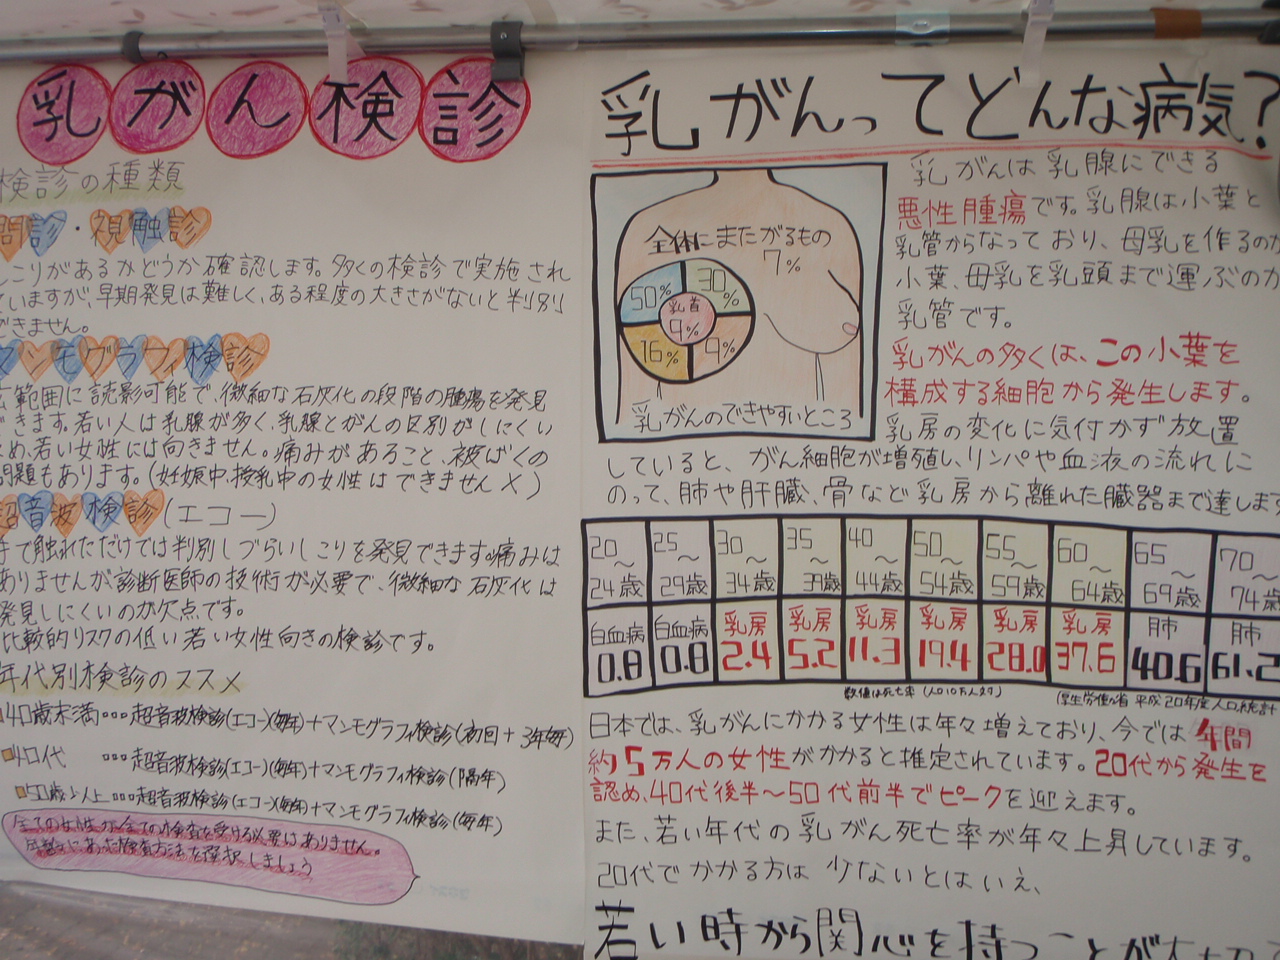 乳がん検診
検診の種類
問診・視触診
しこりがあるかどうか確認します。多くの検診で実施され
ていますが、早期発見は難しく、ある程度の大きさがないと判別
できません。
マンモグラフィ検診
広範囲に読影可能で、微細な石灰化の段階の腫瘍を発見
できます。若い人は乳腺が多く、乳腺とがんの区別がしにくい
ため、若い女性には向きません。痛みがあること、被ばくの
問題もあります。(妊娠中、授乳中の女性はできません×)
超音波検診(エコー)
手で触れただけでは判別しづらいしこりを発見できます。痛みは
ありませんが診断医師の技術が必要で、微細な石灰化は
発見しにくいのが欠点です。
比較的リスクの低い若い女性向きの検診です。
年代別検診のススメ
40歳未満…超音波検診(エコー)(毎年)+マンモグラフィ検診(初回+3年毎)
40代 …超音波検診(エコー)(毎年)+マンモグラフィ検診(隔年)
50歳以上…超音波検診(エコー)(毎年)+マンモグラフィ検診(毎年)
全ての女性が全ての検査を受ける必要はありません。
年齢にあった検査方法を選択しましょう
乳がんってどんな病気?
全体にまたがるもの
7%
50%
30%
乳首
9%
16%
9%
乳がんのできやすいところ
乳がんは乳腺にできる
悪性腫瘍です。乳腺は小葉と
乳管からなっており、母乳を作るのが
小葉、母乳を乳頭まで運ぶのが
乳管です。
乳がんの多くは、この小葉を
構成する細胞から発生します。
乳房の変化に気付かず放置
していると、がん細胞が増殖し、リンパや血液の流れに
のって、肺や肝臓、骨など乳房から離れた臓器まで達します
20～24歳 25～29歳 30～34歳 35～39歳 40～44歳 50～54歳 55～59歳 60～64歳 65～69歳 70～74歳
白血病 白血病 乳房 乳房 乳房 乳房 乳房 乳房 肺 肺
0.8 0.8 2.4 5.2 11.3 19.4 28.0 37.6 40.6 61.2
数値は死亡率(人口10万人対)
(厚生労働省 平成20年度人口統計
日本では、乳がんにかかる女性は年々増えており、今では年間
約5万人の女性がかかると推定されています。20代から発生を
認め、40代後半～50代前半でピークを迎えます。
また、若い年代の乳がん死亡率が年々上昇しています。
20代でかかる方は少ないとはいえ、
若い時から関心を持つことが大切